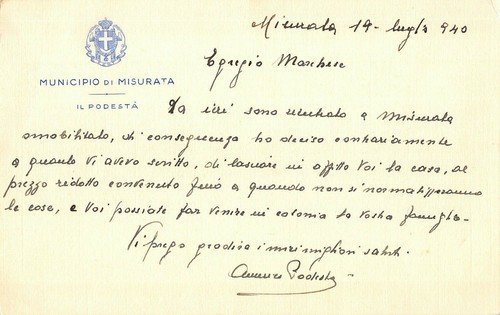 Misurata 14 luglio 940
MUNICIPIO DI MISURATA
IL PODESTÀ
Egregio Marchese
Da ieri sono rientrato a Misurata
smobilitato, di conseguenza ho deciso contrariamente
a quanto vi avevo scritto, di lasciare in affitto Voi la casa, al
prezzo ridotto convenuto fino a quando non si normalizzeranno
le cose, e Voi possiate far venire in colonia la vostra famiglia.
Vi prego gradire i miei migliori saluti.
Podestà